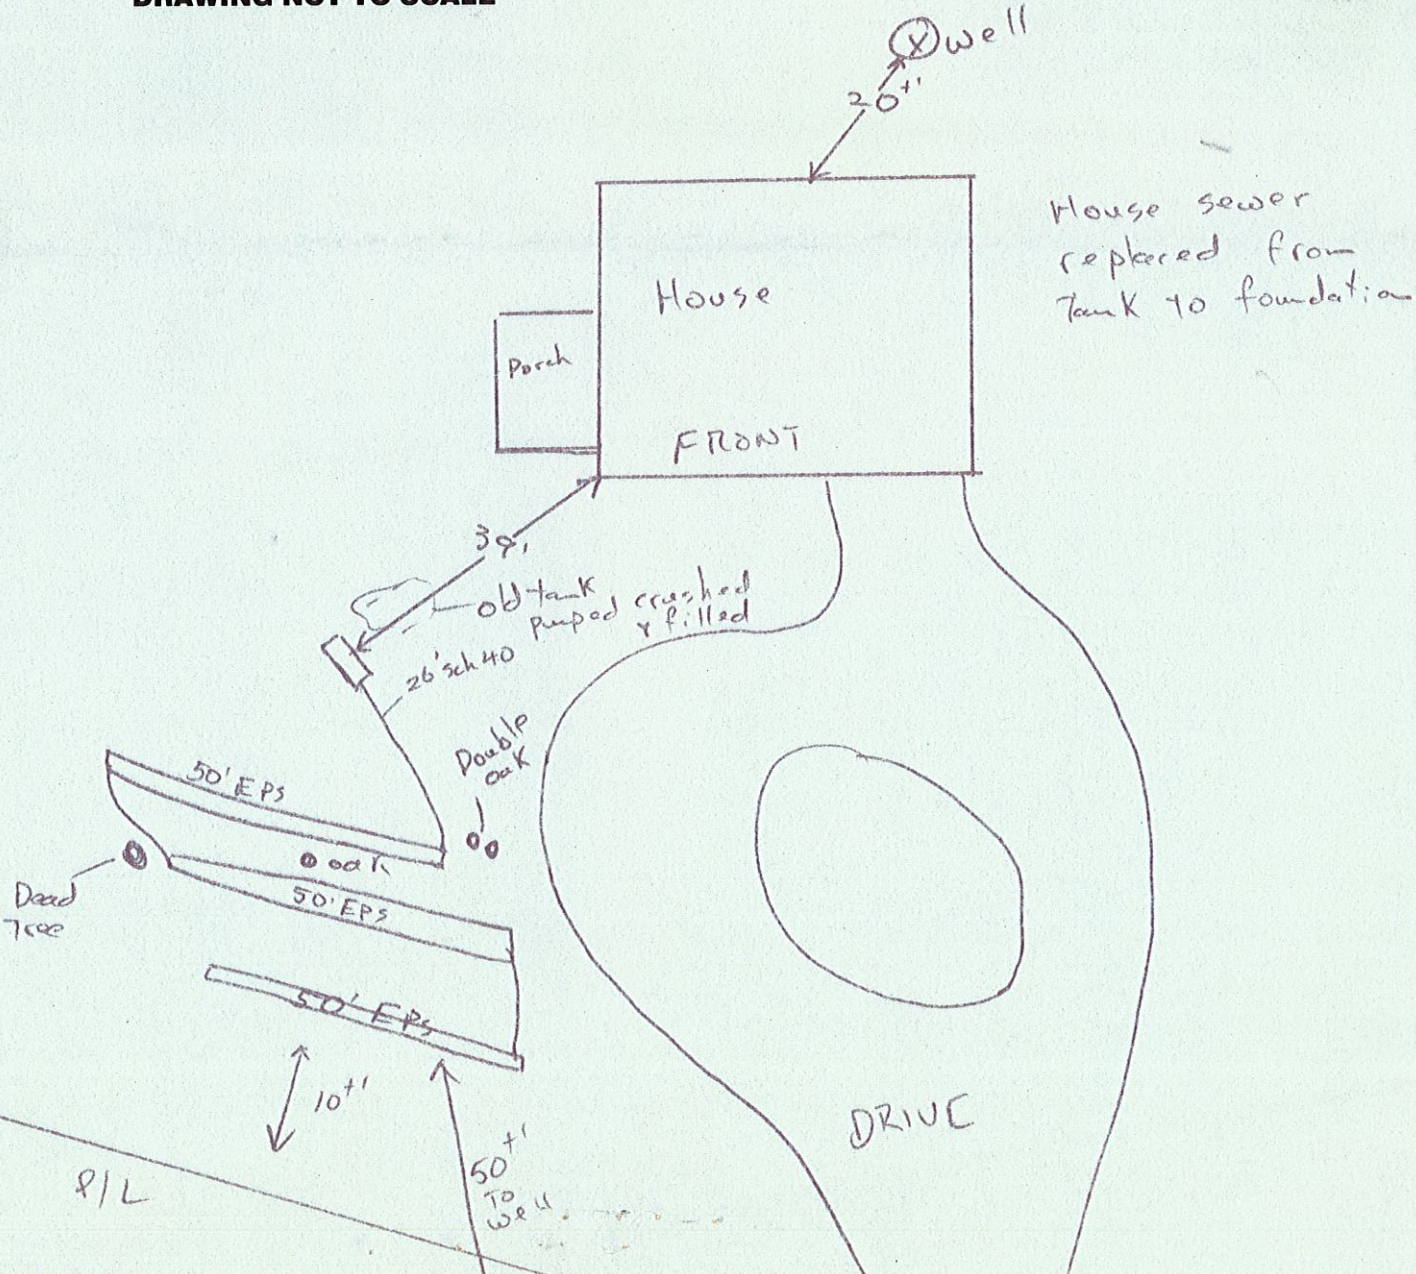 DRAWING NOT TO SCALE
well
20+'
House sewer
replaced from
Tank to foundation
House
Porch
FRONT
old tank
pumped crushed
& filled
26' sch 40
Double
oak
50' EPS
oak
Dead
Tree
50' EPS
50' EPS
10+'
DRIVE
P/L
50+'
To
well